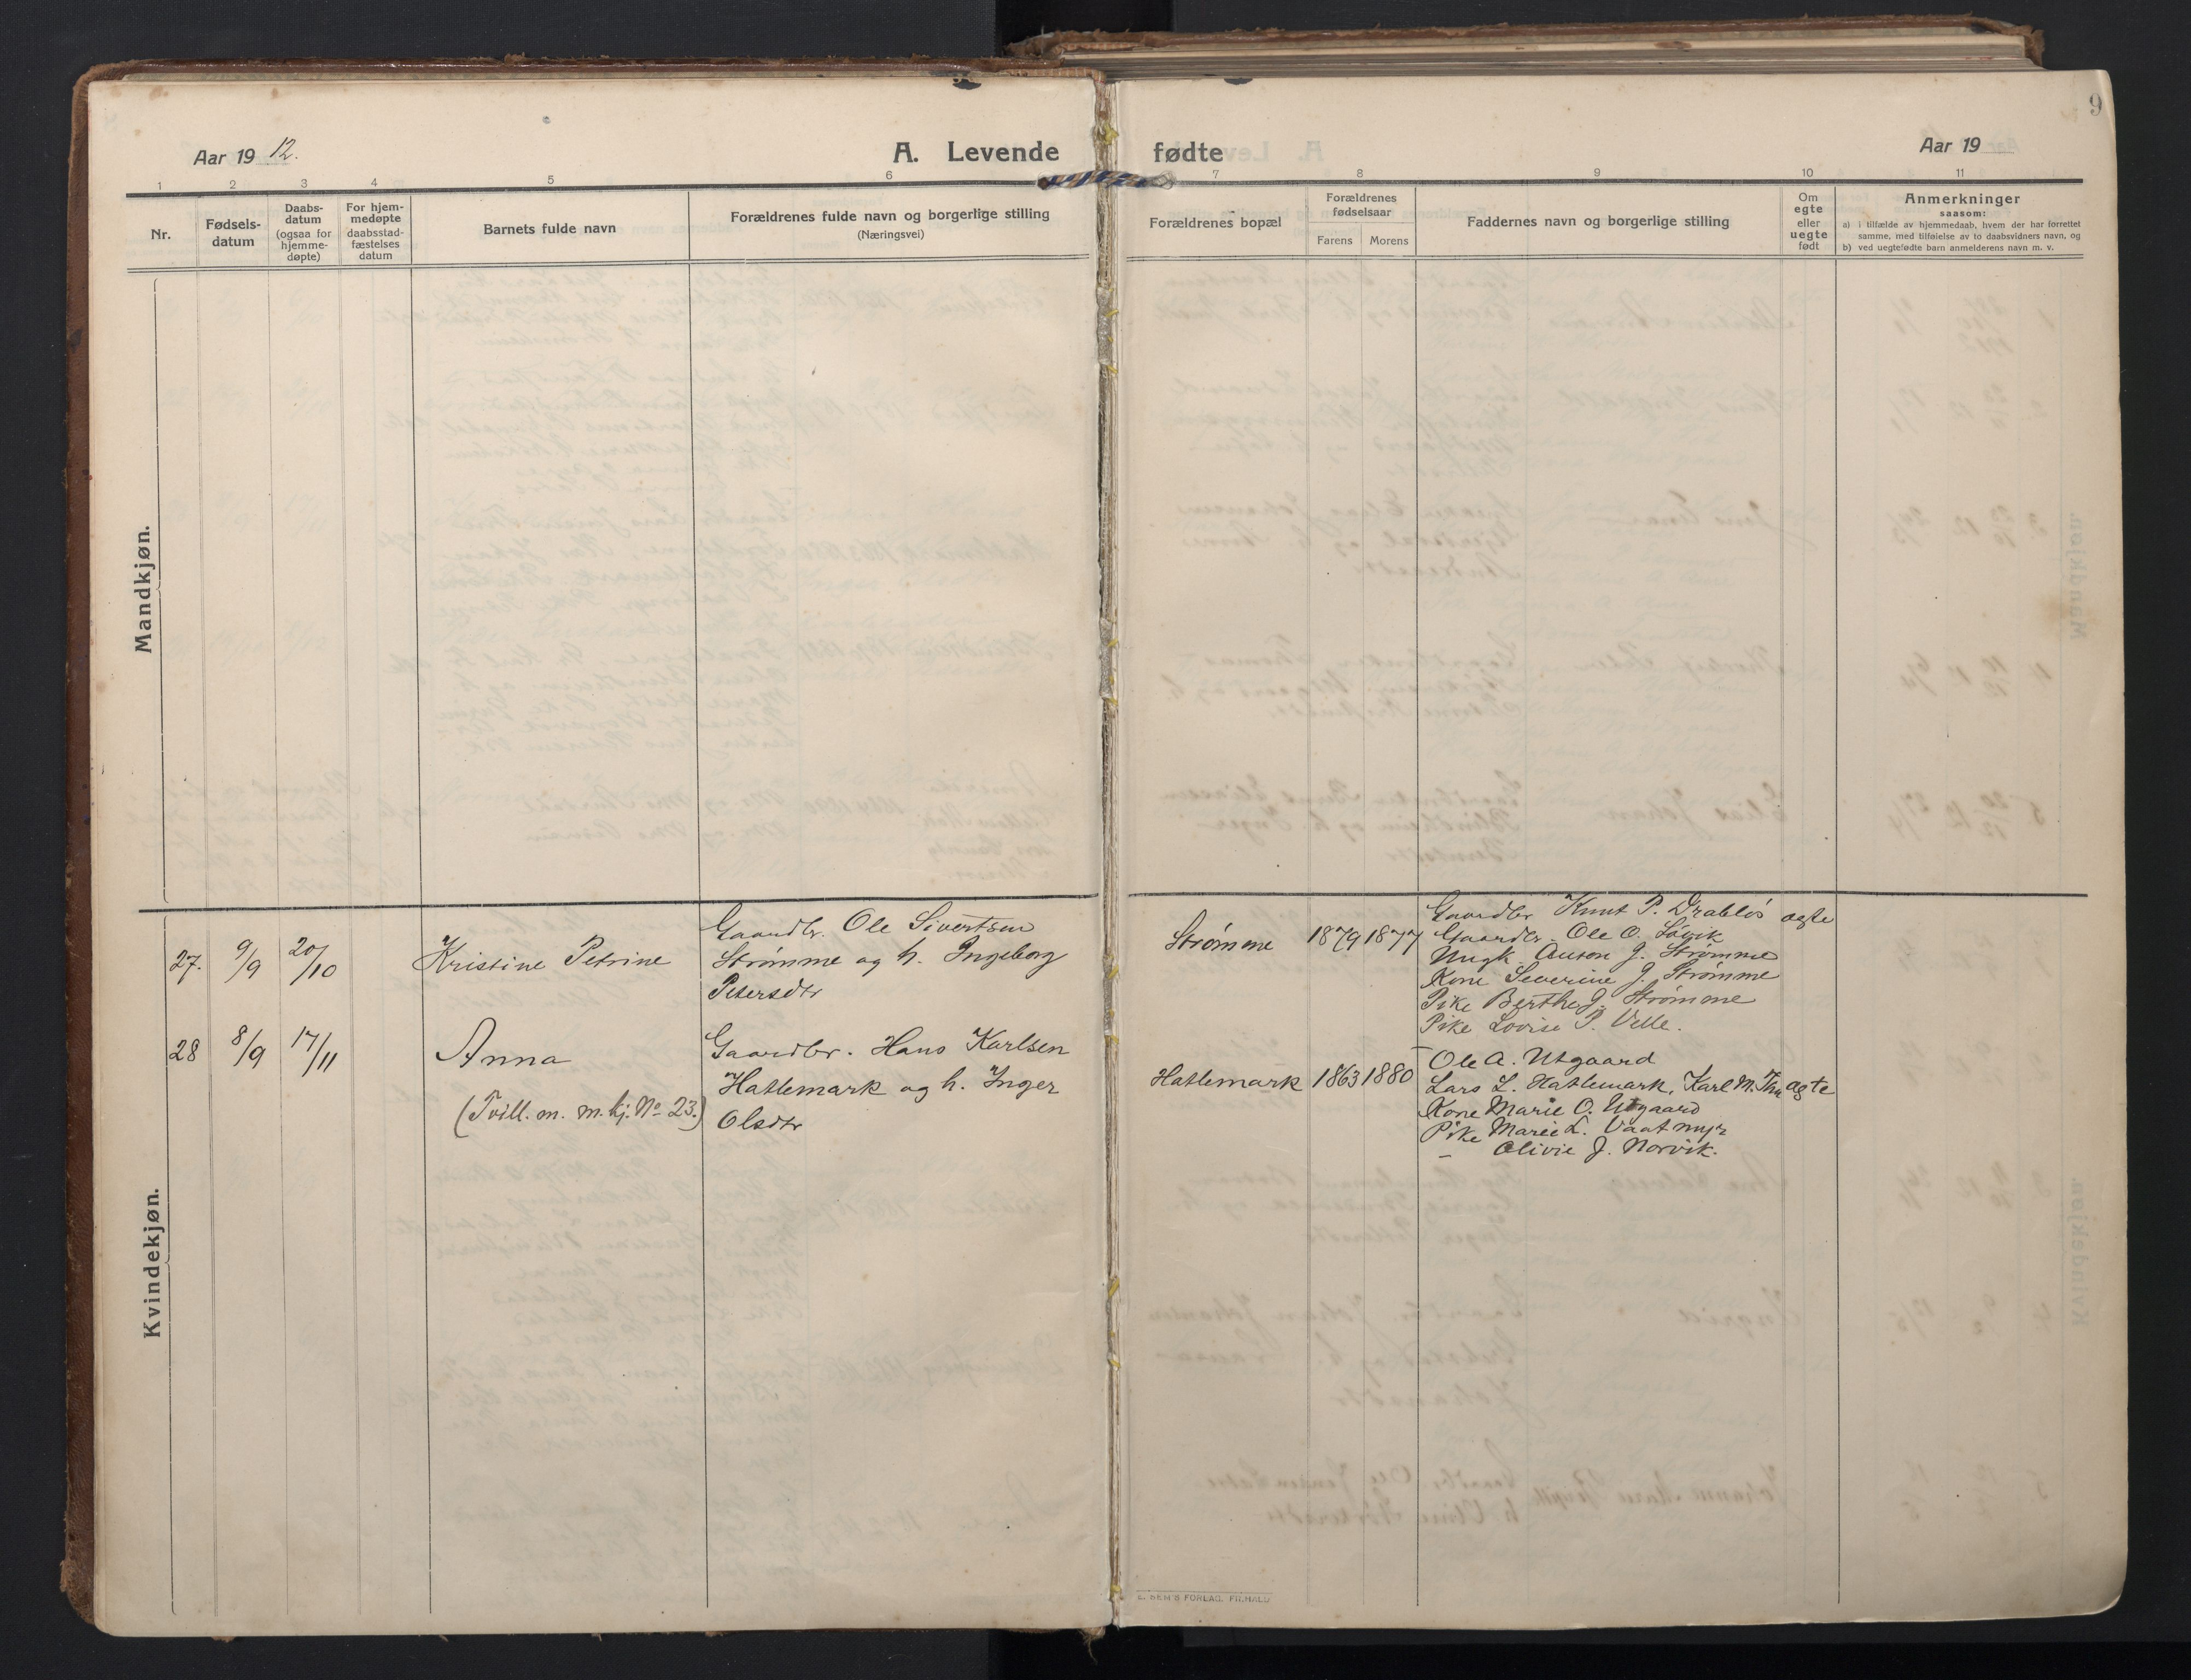 9
Aar 19 12.
A. Levende
fødte
Aar 19
1 2 3 4 5 6 7 8 9 10 11
Nr.
Fødsels-
datum
Daabs-
datum
(ogsaa for
hjemme-
døpte)
For hjem-
medøpte
daabsstad-
fæstelses
datum
Barnets fulde navn
Forældrenes fulde navn og borgerlige stilling
(Næringsvei)
Forældrenes bopæl
Forældrenes
fødselsaar
Farens Morens
Faddernes navn og borgerlige stilling
Om
egte
eller
uegte
født
Anmerkninger
saasom:
a) i tilfælde av hjemmedaab, hvem der har forrettet
samme, med tilføielse av to daabsvidners navn, og
b) ved uegtefødte barn anmelderens navn m. v.
Mandkjøn.
Kvindekjøn.
27. 9/9 20/10 Kristine Petrine
Gaardbr. Ole Sivertsen
Strømme og h. Ingeborg
Petersdtr
Strømme 1879 1877
Gaardbr Knut P. Drabløs
Gaardbr. Ole O. Løvik
Ungk. Anton J. Strømme
Kone Severine J. Strømme
Pike Berthe J. Strømme
Pike Lovise P. Velle.
ægte
28 8/9 17/11 Anna
(Tvill. m. m. kj. No 23.)
Gaardbr. Hans Karlsen
Hatlemark og h. Inger
Olsdtr
Hatlemark 1863 1880
Ole A. Utgaard
Lars L. Hatlemark, Karl M.
Kone Marie O. Utgaard
Pike Marie L. Vaatmyr
– Olivie J. Norvik.
ægte
E. SEM'S FORLAG. FR.HALD